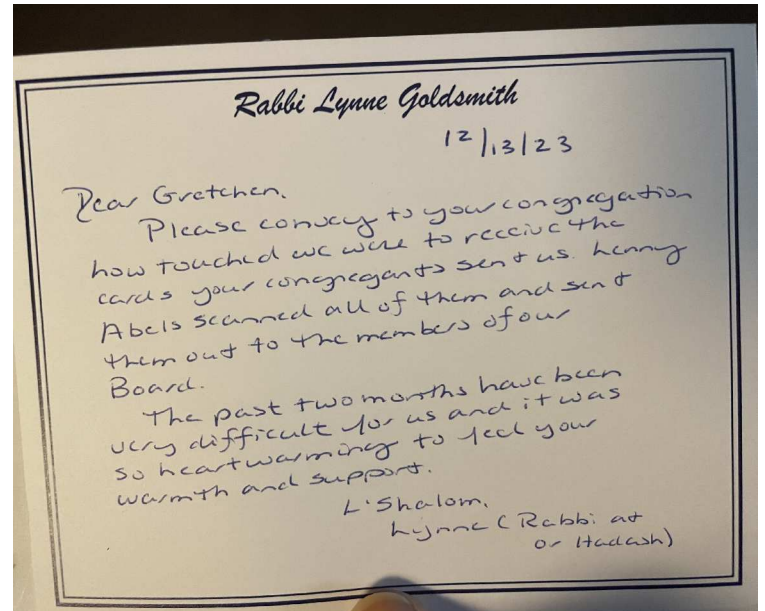 Rabbi Lynne Goldsmith
12/13/23
Dear Gretchen.
Please convey to your congregation
how touched we were to receive the
cards your congregants sent us. Lenny
Abels scanned all of them and sent
them out to the members of our
Board.
The past two months have been
very difficult for us and it was
so heartwarming to feel your
warmth and support.
L'Shalom,
Lynne (Rabbi at
Or Hadash)